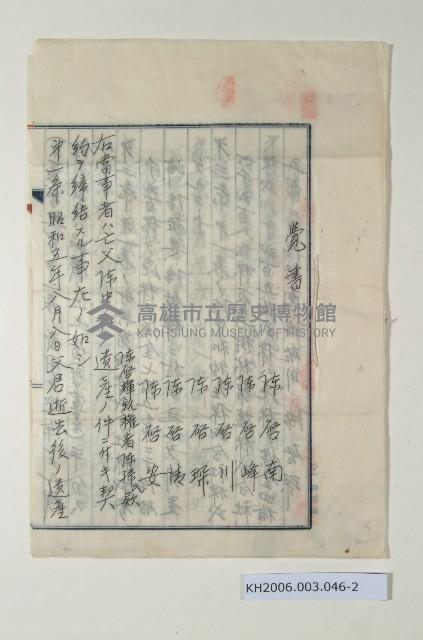 覺書
陈啓南
陈啓峰
陈啓川
陈啓琛
陈啓清
陈啓安
陈啓輝親権者陈孫款
右當事者ハ亡父陈中和遺產ノ件ニ付キ契
約ヲ締結スル事左ノ如シ
第一条 昭和五年八月八日父君逝去後ノ遺產
高雄市立歷史博物館
KAOHSIUNG MUSEUM OF HISTORY
KH2006.003.046-2